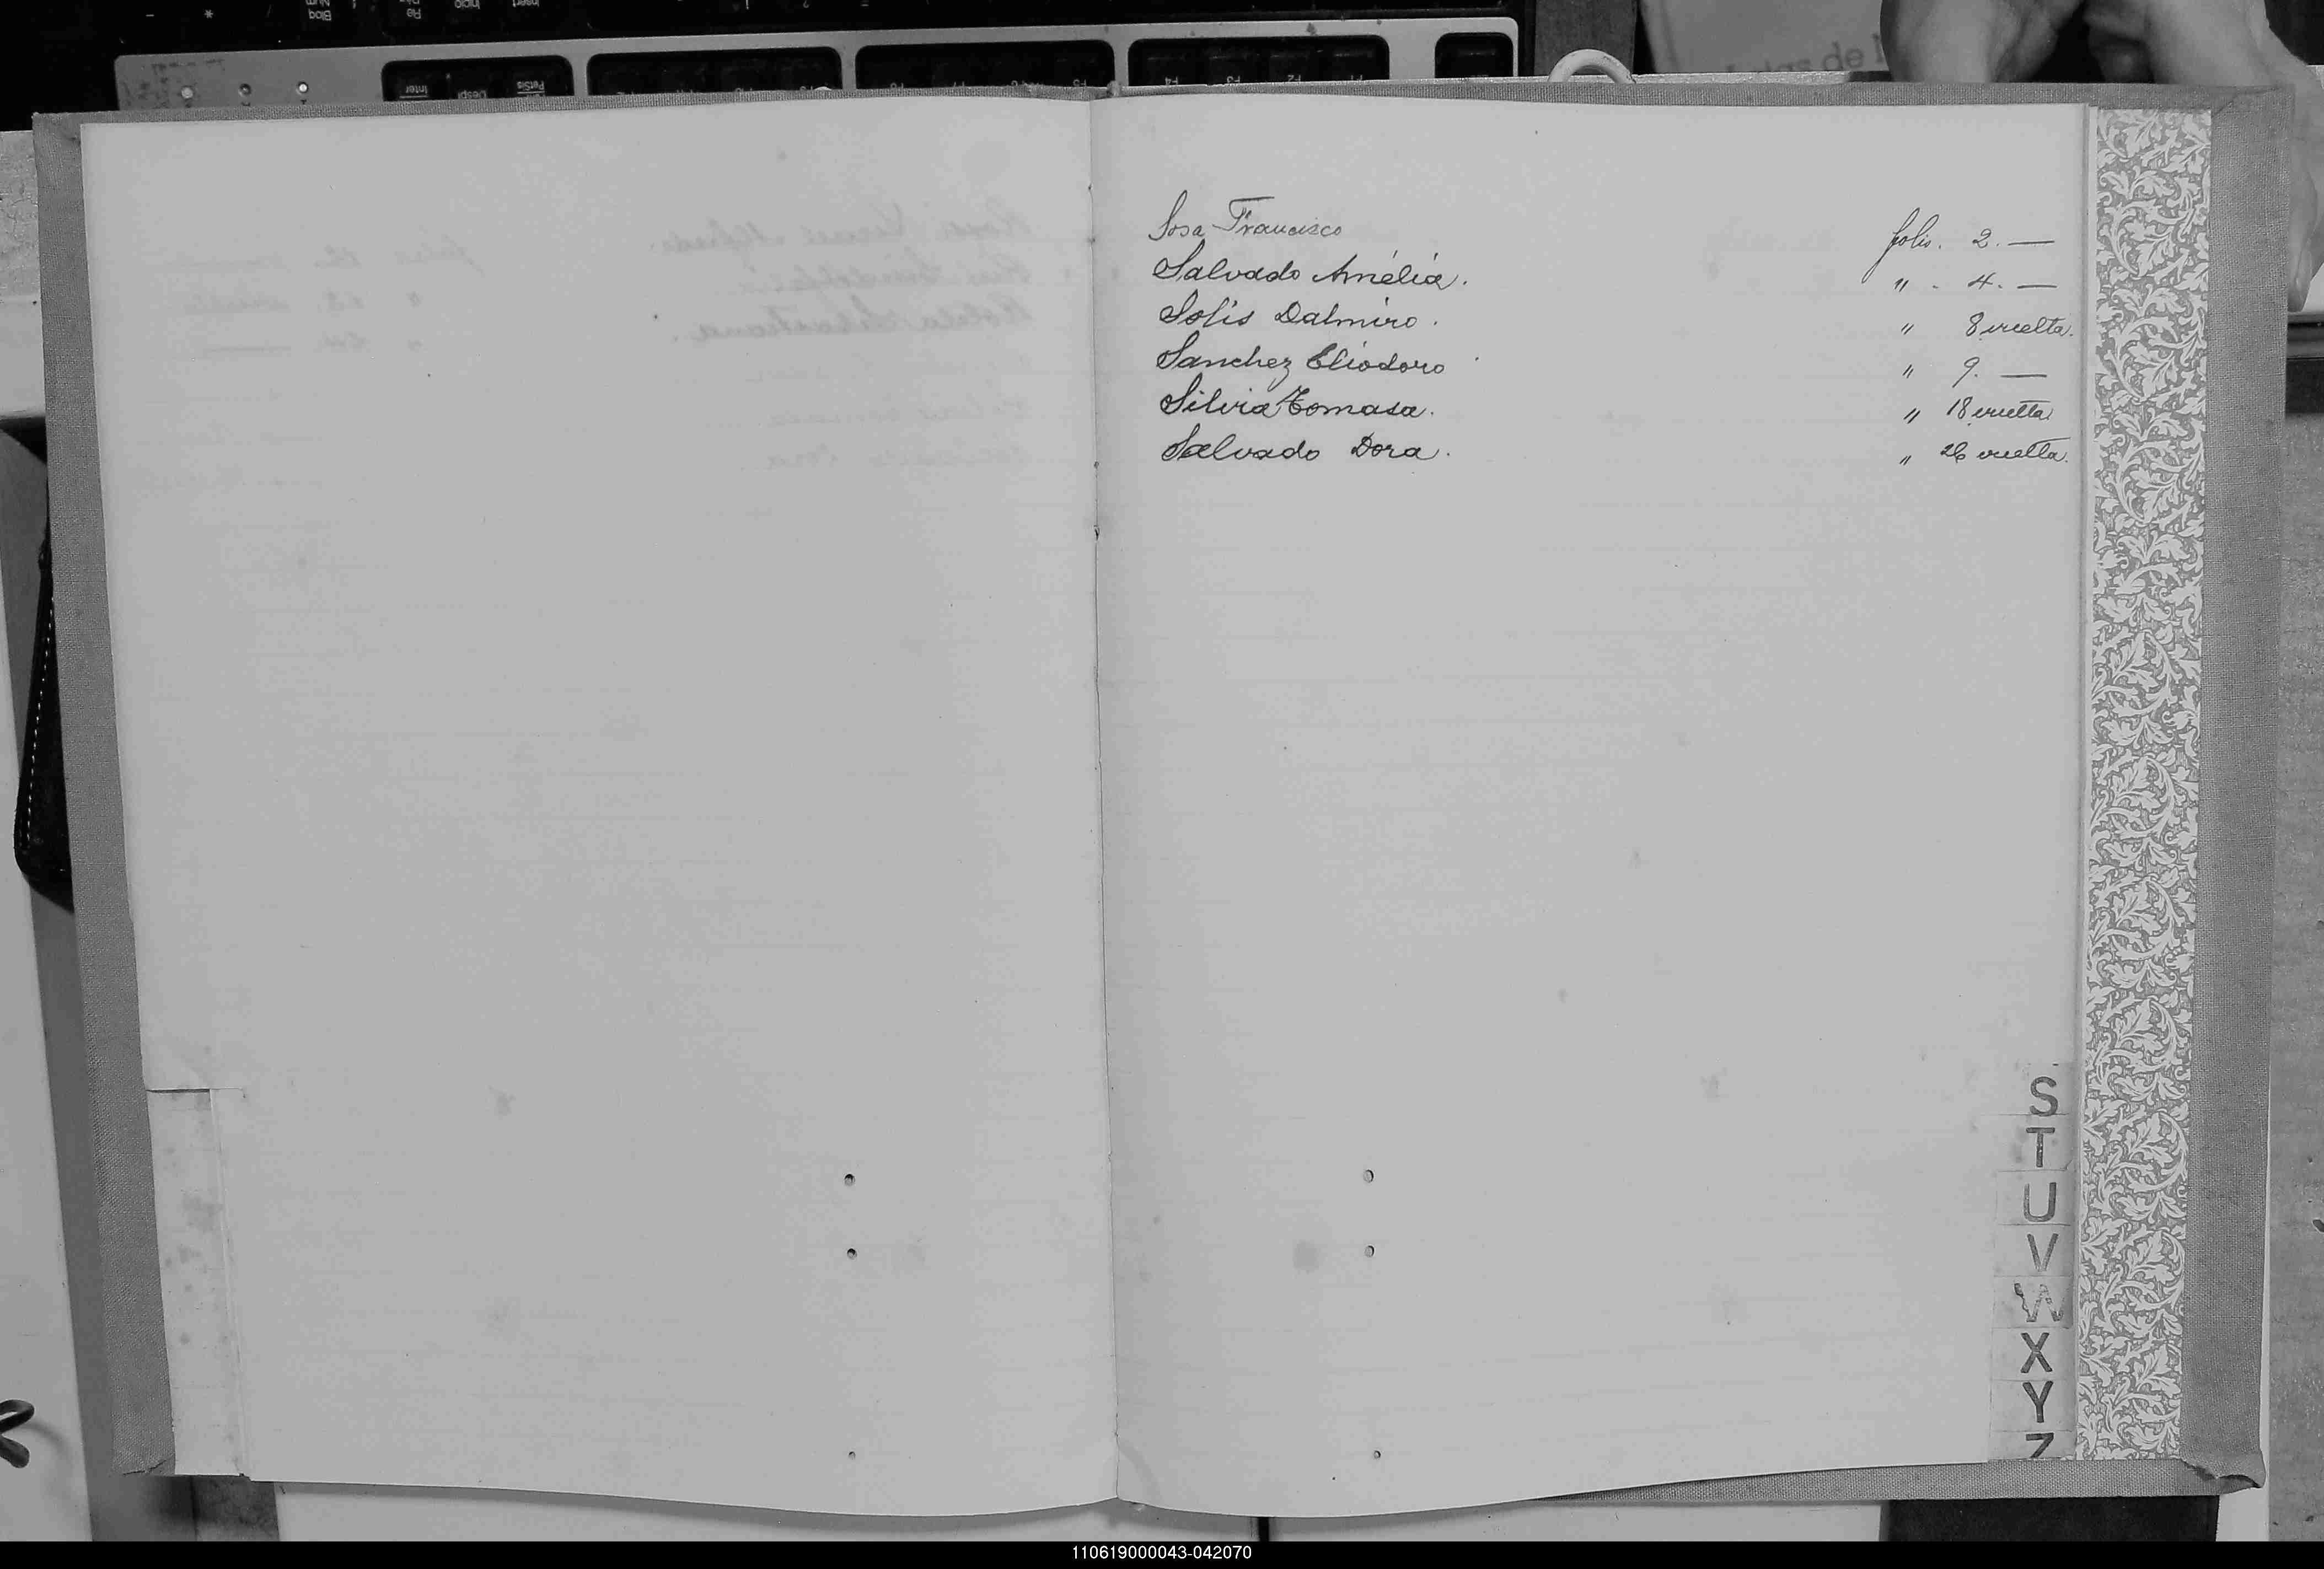 Sosa Francisco folio. 2. —
Salvado Amélia. " . 4. —
Solis Dalmiro. " 8 vuelta.
Sanchez Eliodoro " 9. —
Silvia Tomasa. " 18 vuelta
Salvado Dora. " 26 vuelta.
S
T
U
V
W
X
Y
Z
110619000043-042070